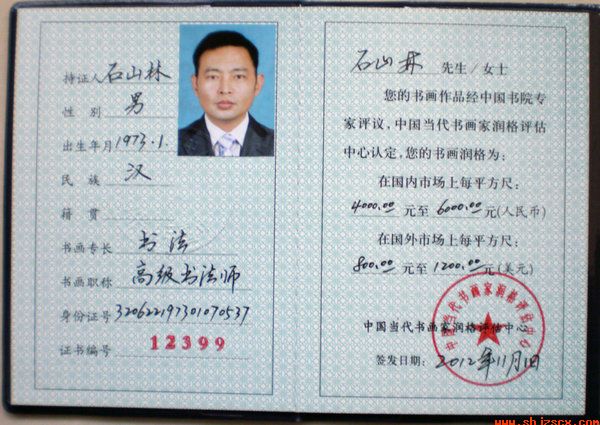 持证人石山林
性 别 男
出生年月1973.1.
民 族 汉
籍 贯
书画专长 书法
书画职称 高级书法师
身份证号320622197301070537
证书编号 12399
石山林 先生/女士
您的书画作品经中国书院专
家评议，中国当代书画家润格评估
中心认定，您的书画润格为：
在国内市场上每平方尺：
4000.00 元至 6000.00 元(人民币)
在国外市场上每平方尺：
800.00 元至 1200.00 元(美元)
中国当代书画家润格评估中心
中国当代书画家润格评估中心
签发日期：2012年11月1日
www.shjzscx.com